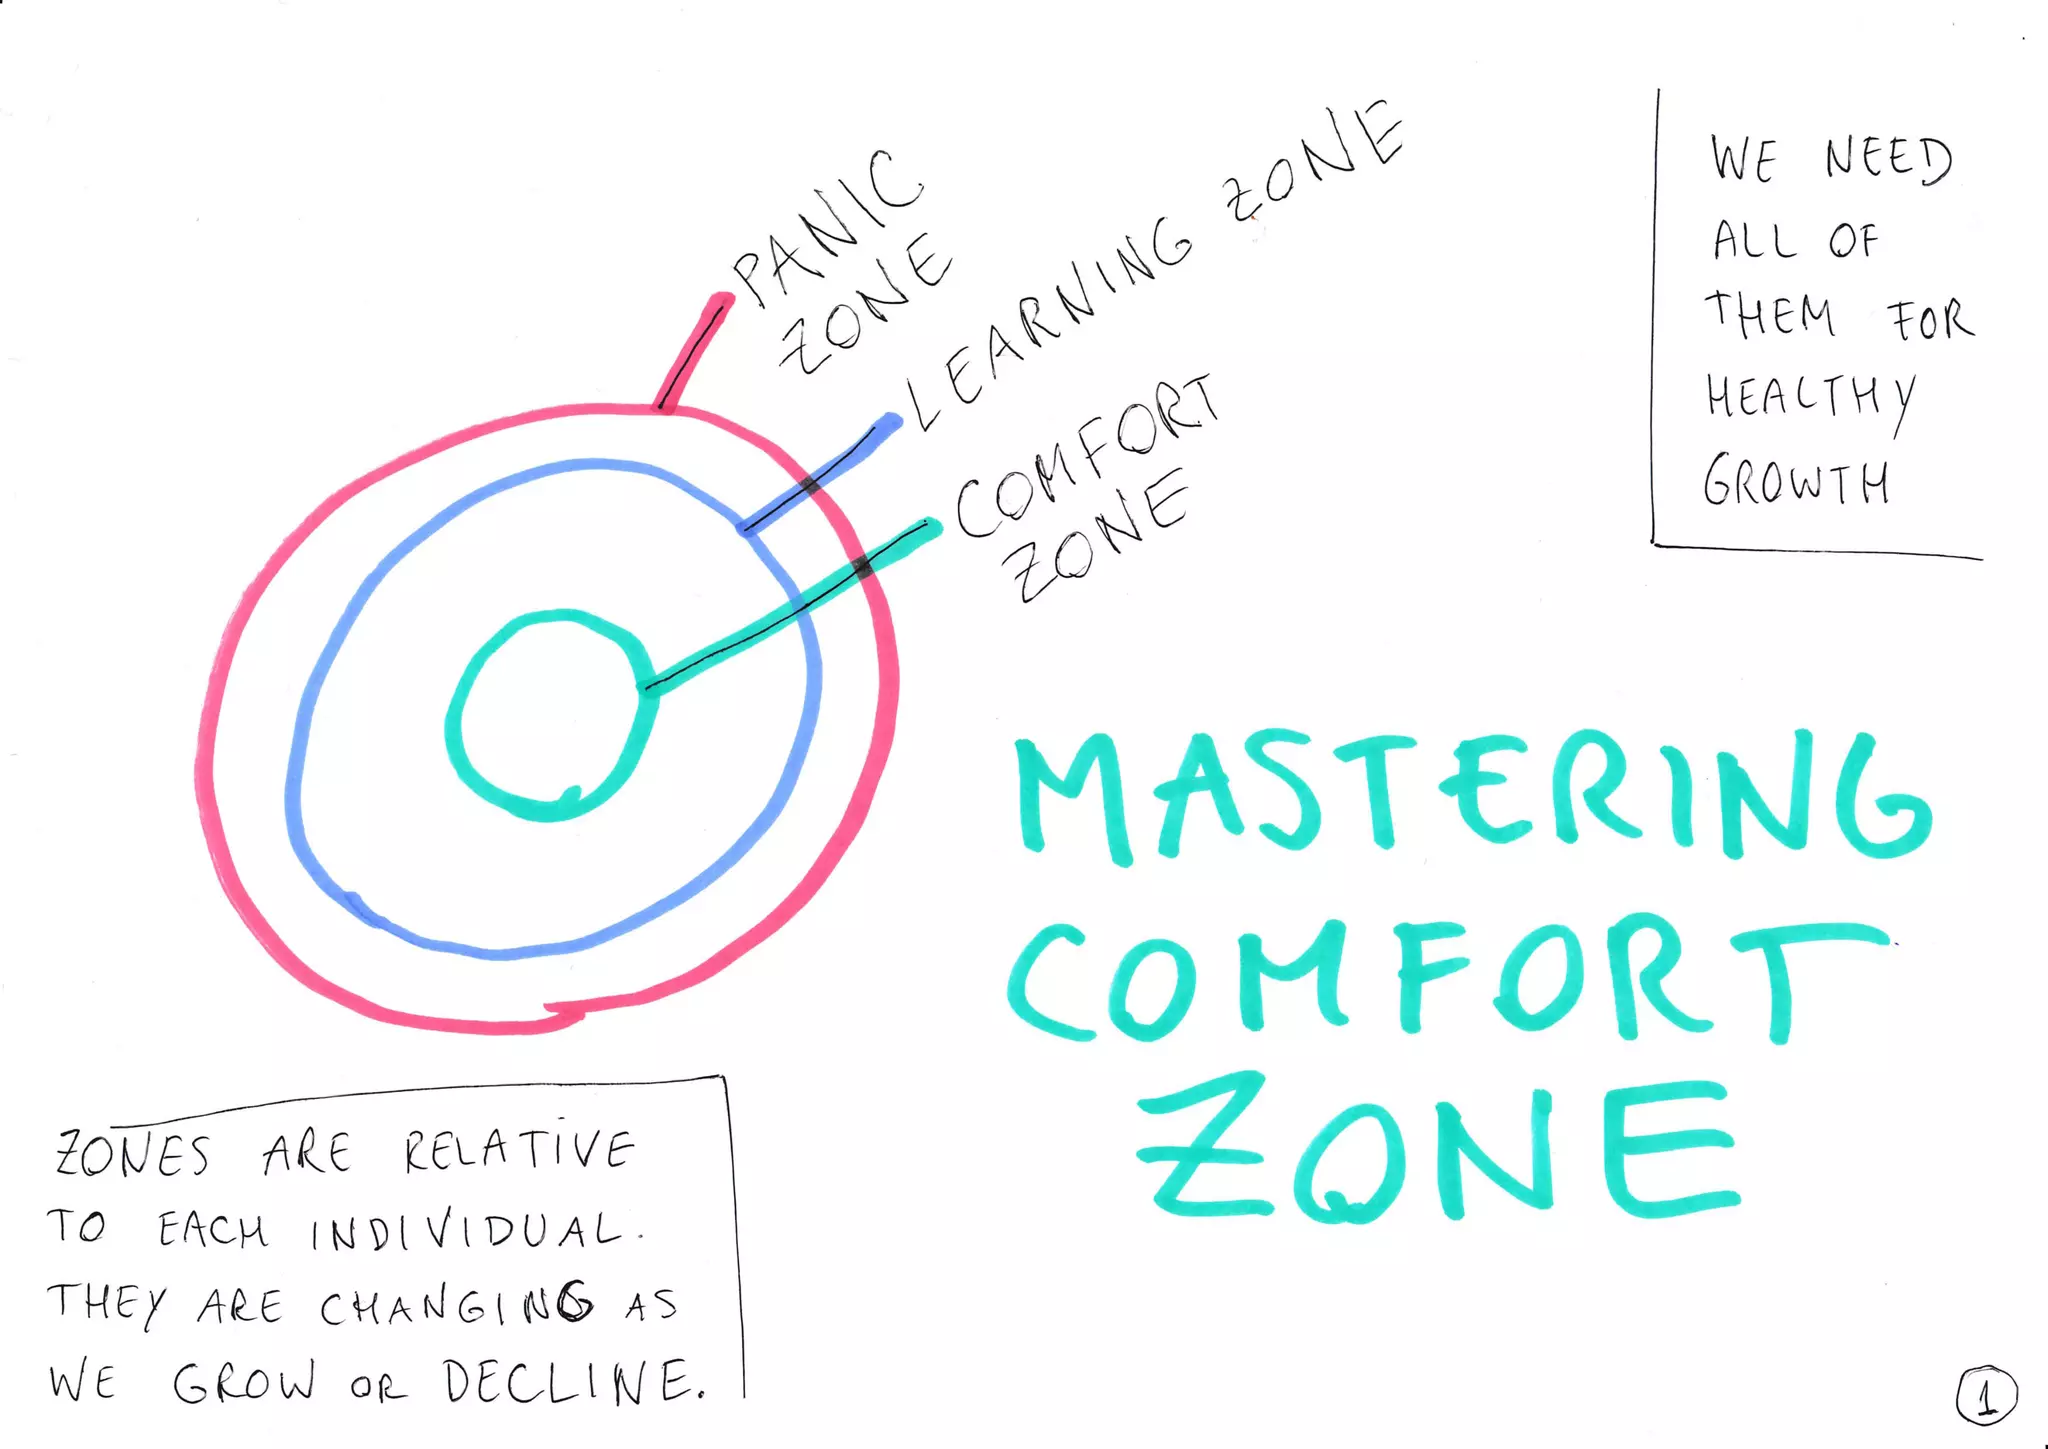 PANIC
ZONE
LEARNING ZONE
COMFORT
ZONE
WE NEED
ALL OF
THEM FOR
HEALTHY
GROWTH
MASTERING
COMFORT
ZONE
ZONES ARE RELATIVE
TO EACH INDIVIDUAL.
THEY ARE CHANGING AS
WE GROW OR DECLINE.
1